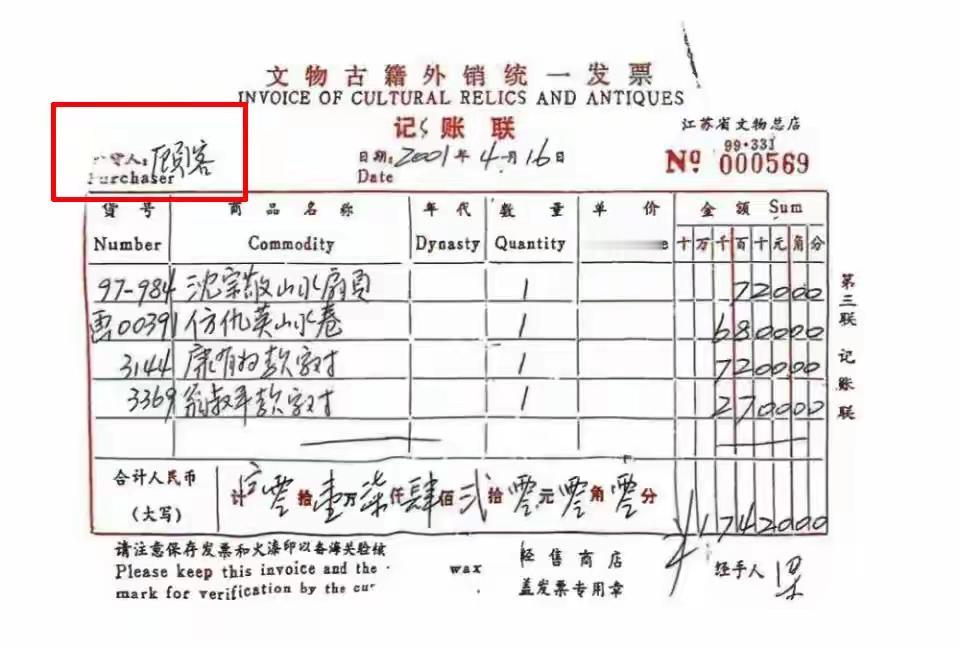 文物古籍外销统一发票
INVOICE OF CULTURAL RELICS AND ANTIQUES
记账联
江苏省文物总店
99·331
№ 000569
人：顾客
Purchaser
日期：2001年4月16日
Date
货号 商品名称 年代 数量 单价 金额 Sum
Number Commodity Dynasty Quantity 十万千百十元角分
97-984 沈宗敬山水扇页 1 72000
00391 仿仇英山水卷 1 680000
3144 康有为款字对 1 720000
3369 翁叔平款字对 1 270000
合计人民币
（大写）
计 零拾壹万柒仟肆佰弍拾零元零角零分
¥1742000
第三联 记账联
请注意保存发票和火漆印以备海关验核
Please keep this invoice and the wax
mark for verification by the
经售商店
盖发票专用章
经手人